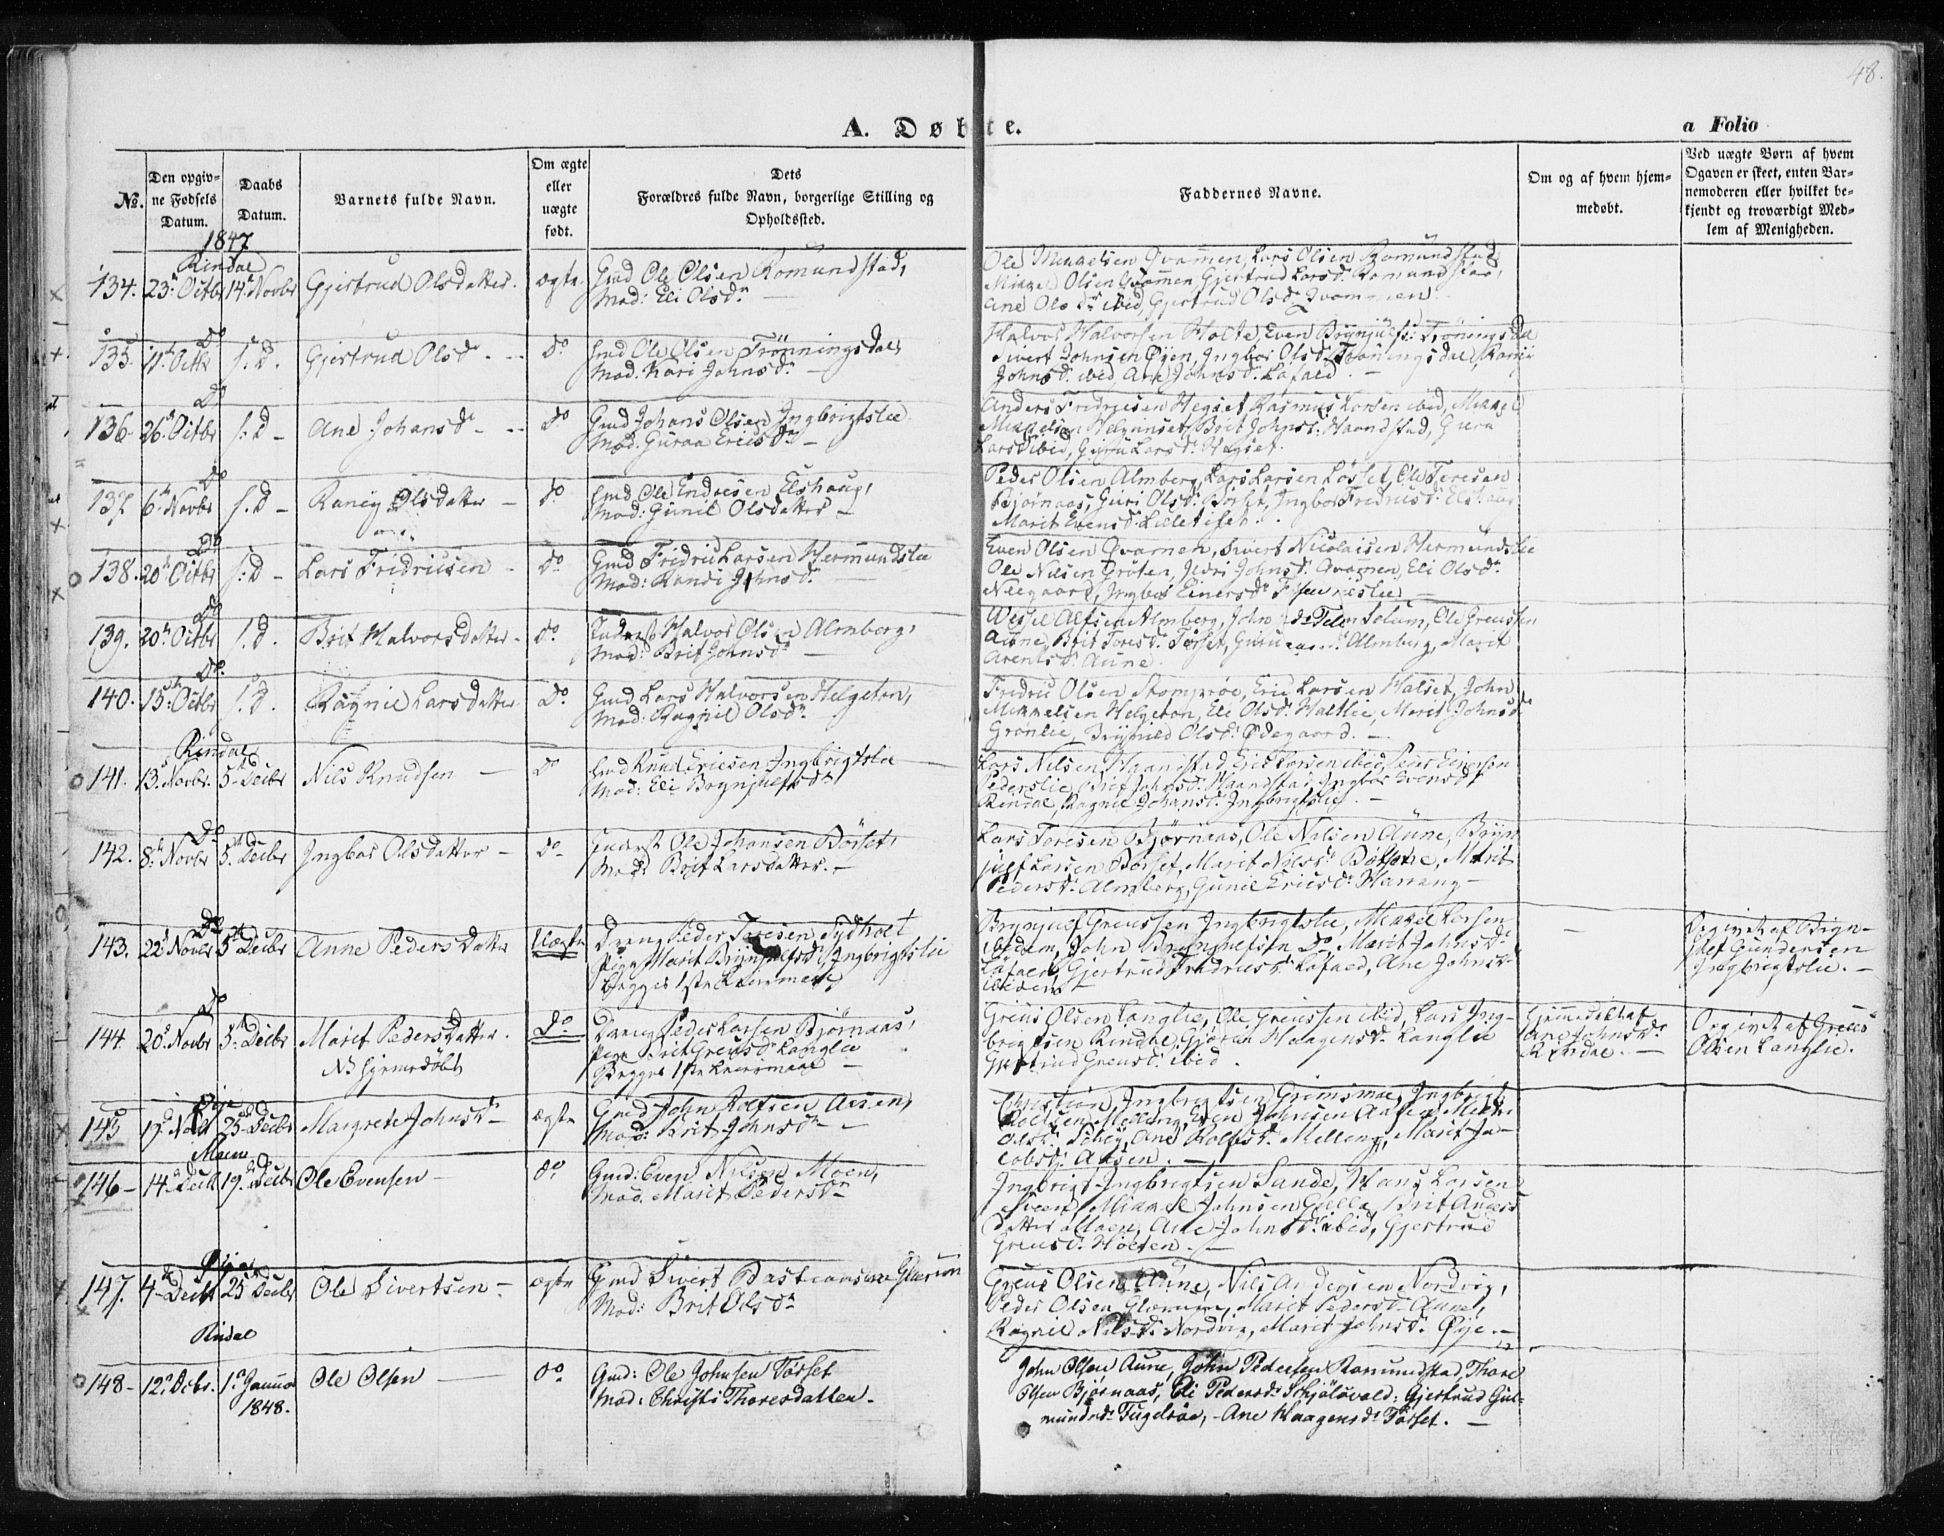 48.
A. Døbte.
a Folio
№.
Den opgiv-
ne Fødsels
Datum.
Daabs
Datum.
Barnets fulde Navn.
Om ægte
eller
uægte
født.
Dets
Forældres fulde Navn, borgerlige Stilling og
Opholdssted.
Faddernes Navne.
Om og af hvem hjem-
medøbt.
Ved uægte Børn af hvem
Opgaven er skeet, enten Bar-
nemoderen eller hvilket be-
kjendt og troværdigt Med-
lem af Menigheden.
1847
Rindal
134. 23. Octbr 14 Novbr Gjertrud Olsdatter. ægte Gmd Ole Olsen Romundstad,
Mod: Eli Olsdr
Ole Mikkelsen Qvammen, Lars Olsen Romundstad,
Mikkel Olsen Qvammen Gjertrud Larsd. Romundstad,
Ane Olsdr ibid, Gjertrud Olsd. Qvammen.
Do
135. 11. Octbr s.D. Gjertrud Olsd. Do Gmd Ole Olsen Trönningsdal,
Mod: Kari Johnsdr
Halvor Halvorsen Holte, Even Brynjulfs: Trönningsdal
Sivert Johnsen Øyen, Ingbor Olsd. Trönningsdal,
Johnsd. ibid, Ane Johnsd. Løfald.
Do
136. 26. Octbr s.D. Ane Johansd. Do Gmd Johans Olsen Ingbrigtslie
Mod: Guraa Ericsdr
Anders Fredricsen Hegset Rasmus Larsen ibid, Mikkel
Larsd ibid, Guru Larsd. Hegset.
Do
137. 6 Novbr s.D. Olsdatter Do Gmd Ole Endresen Elshaug,
Mod: Gunil Olsdatter
Peder Olsen Almberg, Lars Larsen Løset, Ole Toresen
Bjørnaas, Guri Olsd. Børset, Ingbor Fredricsd. Elshaug
Marit Evensd. Lilletiset.
Do
138. 20 Octbr s.D. Lars Fridricsen Do Gmd Fridric Larsen Hermundslie
Mod: Randi Johnsdr
Even Olsen Qvamen, Sivert Nicolaisen Hermundslie
Ole Nilsen Grøten, Ildri Johnsd. Qvamen, Eli Olsdr
Neegaard, Ingbor Einersd.
Do
139. 20 Octbr s.D. Brit Halvorsdatter Do Inderst Halvor Olsen Almberg,
Mod: Brit Johnsdr
Wessel Alfsen Almberg, John Solum, Ole Greussen
Aune, Brit Toresd. Tørset, Almberg, Marit
Arentsd. Aune.
Do
140. 15. Octbr s.D. Ragnil Larsdatter Do Gmd Lars Halvorsen Helgeton,
Mod: Ragnil Olsdr
Fredric Olsen Stomprøe, Eric Larsen Halset, John
Mikkelsen Helgeton, Eli Olsd. Haltlie, Marit Johnsd.
Grønlie, Brynild Olsd. Ødegaard.
Rindal
141. 13. Novbr. 5 Decbr Nils Knudsen Do Gmd Knud Ericsen Ingbrigtslie
Mod: Eli Brynjulfsdr
Lars Nilsen Haanstad, Eric Larsen ibid, Peder Einersen
Pederslie, Brit Johnsd. Haanstad, Ingbor Evensdr
Rindal, Ragnil Johansd. Ingbrigtslie.
Do
142. 8. Novbr 5. Decbr Ingbor Olsdatter Do Inderst Ole Johansen Börset,
Mod: Brit Larsdatter.
Lars Toresen Bjørnaas, Ole Nilsen Aune, Bryn-
julf Larsen Børset, Marit Nilsd. Marit
Pedersd. Almberg, Gunil Ericsd. Harrang
Do
143. 22. Novbr 5 Decbr Anne Pedersdatter Uægte Dreng Peder Toresen Sydholt
Pige Marit Brynjulfsd. Ingbrigtslie
Begges 1ste Leiermaal
Brynjulf Greussen Ingbrigtslie, Mikkel Larsen
ibidem, John Brynjulfsen Do, Marit Johnsd.
Løfald, Gjertrud Fredricsd. Løfald, Ane Johnsd.
ibidem
Opgivet af Bryn-
julf Gundersen
Ingbrigtslie.
Do
144. 20. Novbr 5. Decbr Marit Pedersdatter. Do Dreng Peder Larsen Bjørnaas,
NB Hjemedøbt
Pige Brit Greusd. Langlie
Begges 1ste Leiermaal
Greus Olsen Langlie, Ole Greussen ibid, Lars Ing-
brigtsen Rindal, Gjøran Holagensd. Langlie
Gjertrud Greusd. ibid.
Hjemedøbt af
Ane Johnsdr
Rindal.
Opgivet af Greus
Olsen Langlie.
Øye
145 17. Novbr 25 Decbr Margrete Johnsd. ægte Gmd John Rolfsen Aasen,
Mod: Brit Johnsdr
Christian Ingbrigtsen Grimsmoe, Ingbrigt
Rolfsen Melling, Even Johnsen Aasen,
Olsd. Ane Rolfsd. Melling, Marit Ja-
cobsd. Aasen.
Moen
146 14. Decbr 19. Decbr Ole Evensen Do Gmd: Even Nilsen Moen,
Mod. Marit Pedersdr
Ingbrigt Ingbrigtsen Sande, Hans Larsen
Sveen, Mikkel Johnsen Gulla, Brit Anders-
datter Moen, Ane Johnsd. ibid, Gjertrud
Greusd. Holten.
Øye
147. 4 Decbr 25 Decbr Ole Sivertsen ægte Gmd Sivert Bastiansen Glærum
Mod: Brit Olsdr
Greus Olsen Aune, Nils Andersen Nordvig,
Peder Olsen Glærum, Marit Pedersd. Aune,
Ragnil Nilsd. Nordvig, Marit Johnsd. Øye.
Rindal
148 12. Decbr. 1. Januar Ole Olsen Do Gmd: Ole Johnsen Tørset
1848.
Mod: Christi Thoresdatter.
John Olsen Aune, John Pedersen Romundstad, Thore
Olsen Bjørnaas, Eli Pedersd. Skjølsvold, Gjertrud Gul-
mundsd. Fugelsøe, Ane Haagensd. Tørset.